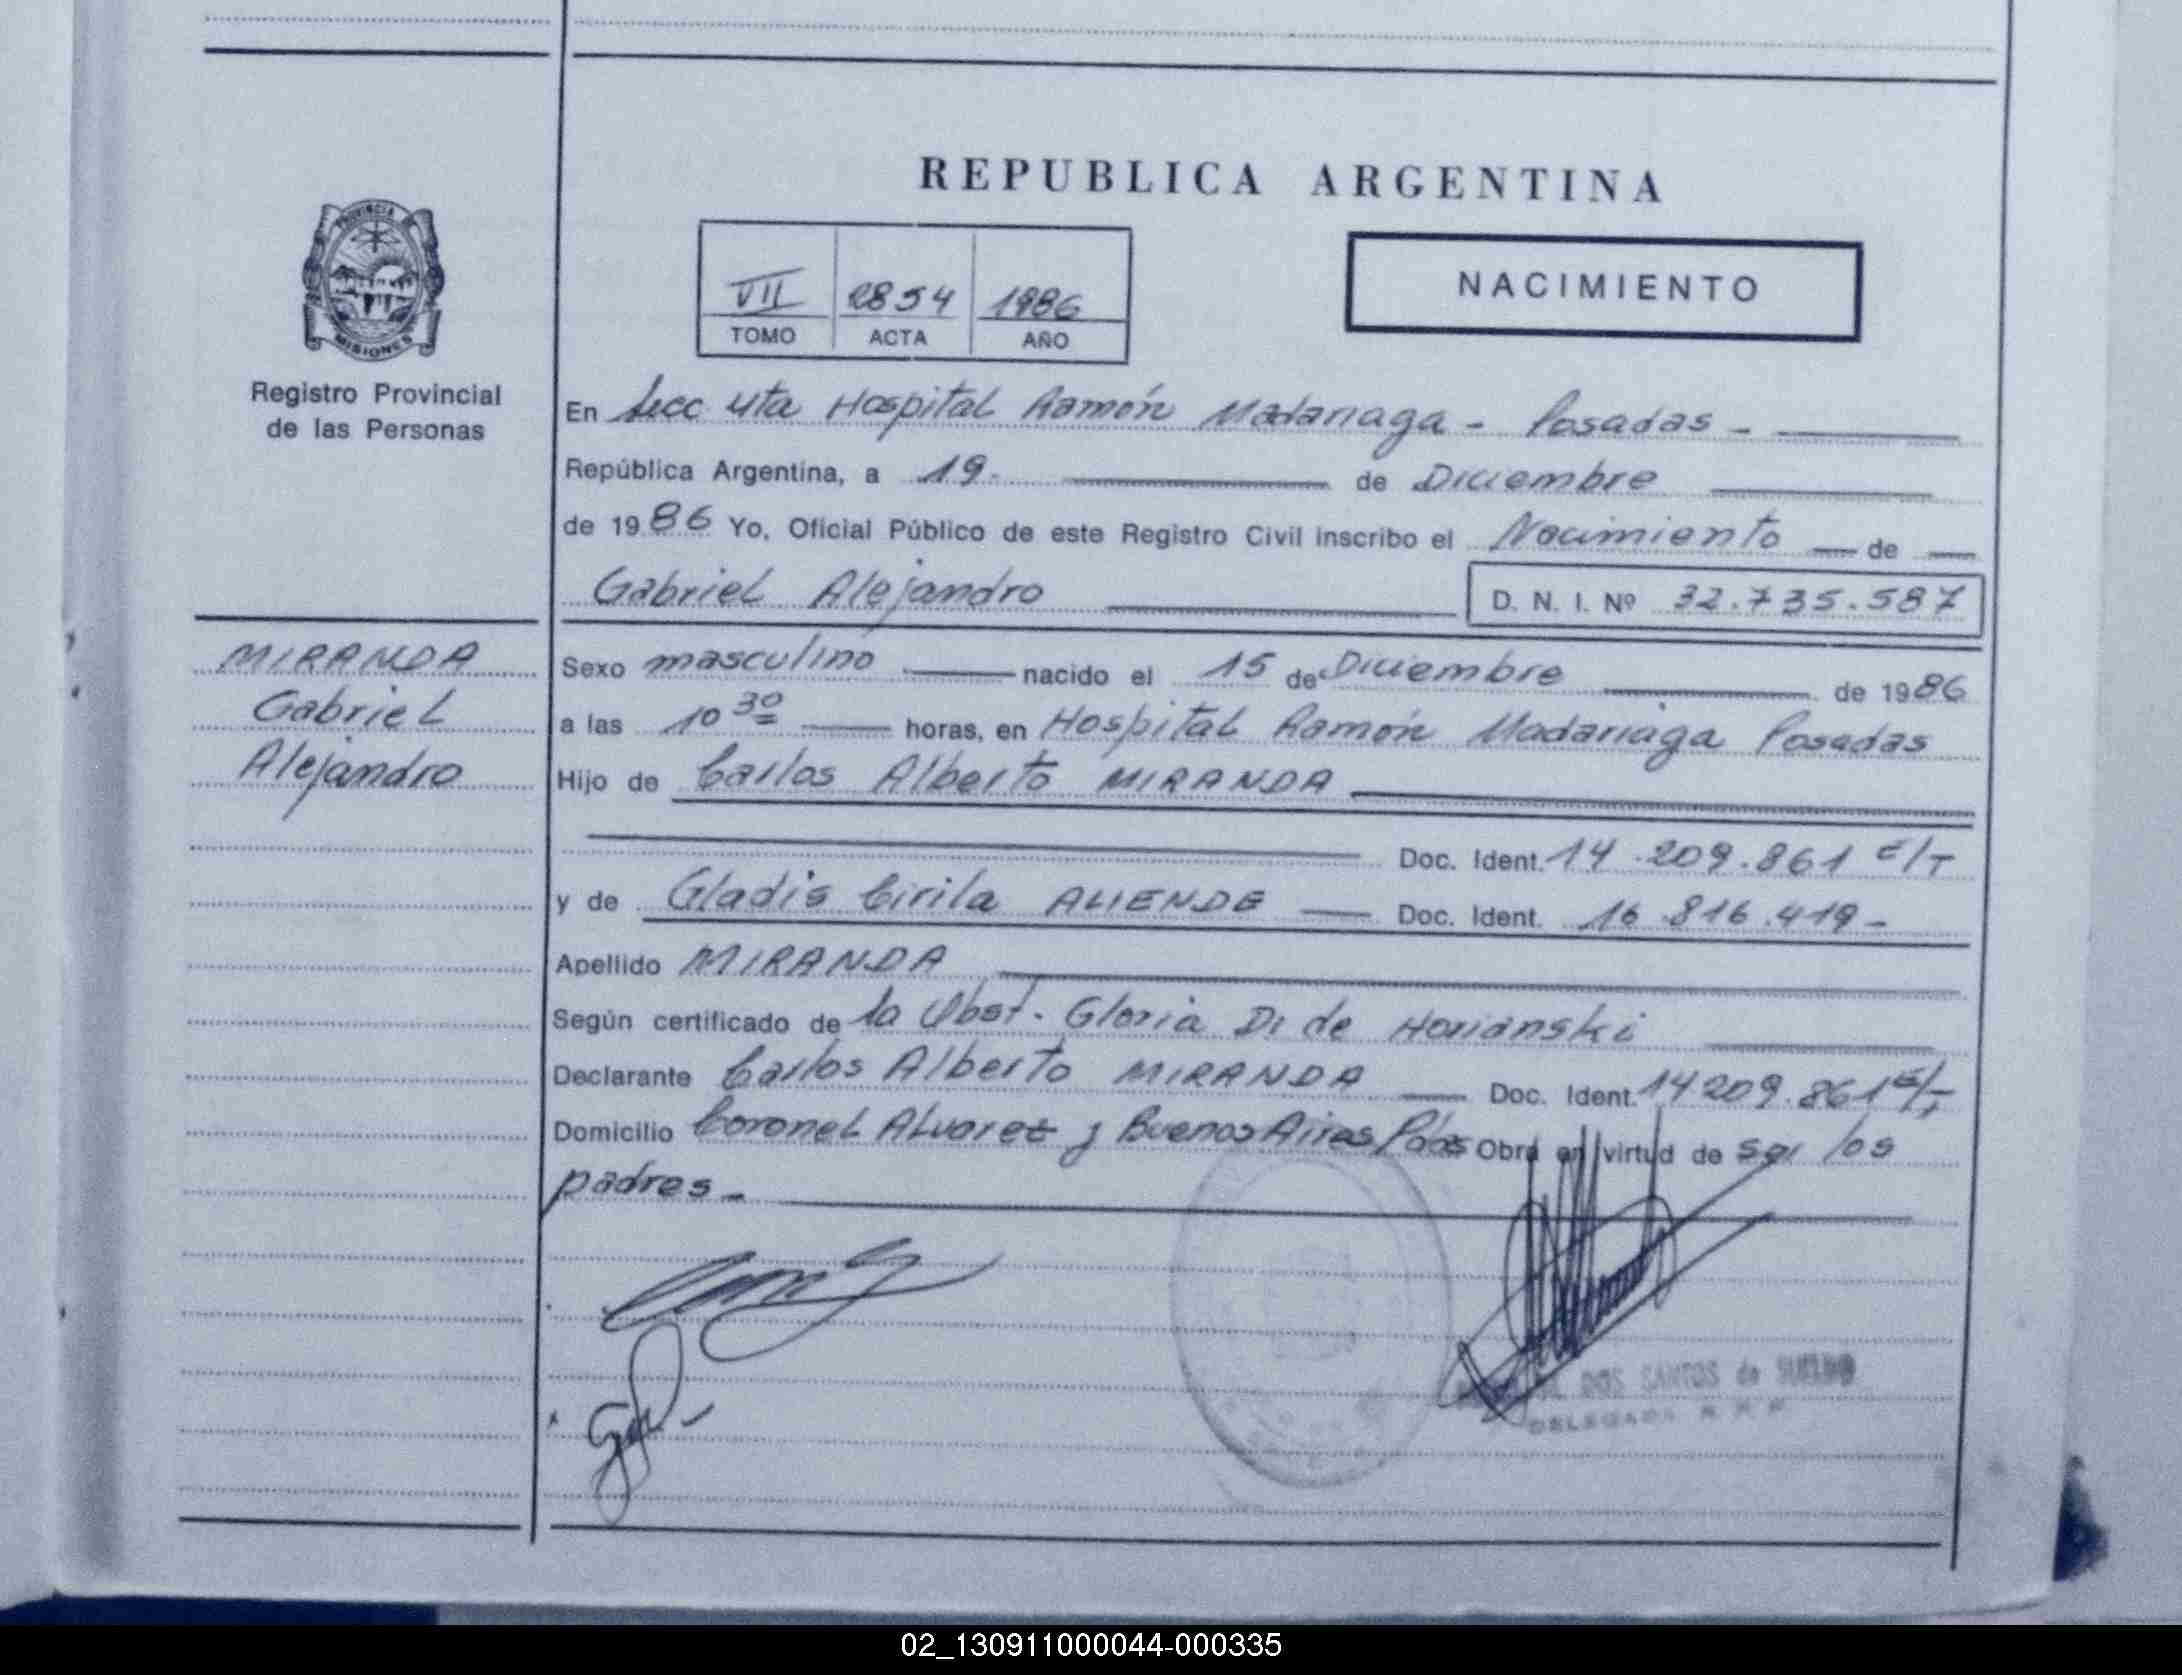 REPUBLICA ARGENTINA
PROVINCIA
MISIONES
Registro Provincial
de las Personas
VII 2854 1986
TOMO ACTA AÑO
NACIMIENTO
En Secc 4ta Hospital Ramón Madariaga - Posadas -
República Argentina, a 19. de Diciembre
de 1986 Yo, Oficial Público de este Registro Civil inscribo el Nacimiento de
Gabriel Alejandro D. N. I. Nº 32.735.587
MIRANDA
Gabriel
Alejandro
Sexo masculino nacido el 15 de Diciembre de 1986
a las 10 30 horas, en Hospital Ramón Madariaga Posadas
Hijo de Carlos Alberto MIRANDA
Doc. Ident. 14.209.861 E/T
y de Gladis Cirila ALIENDE Doc. Ident. 16.816.419-
Apellido MIRANDA
Según certificado de la Obst. Gloria D. de
Declarante Carlos Alberto MIRANDA Doc. Ident. 14209.861 E/T
Domicilio Coronel Alvarez y Buenos Aires Pdas Obra en virtud de ser los
padres -
DOS SANTOS de
DELEGADA
02_130911000044-000335